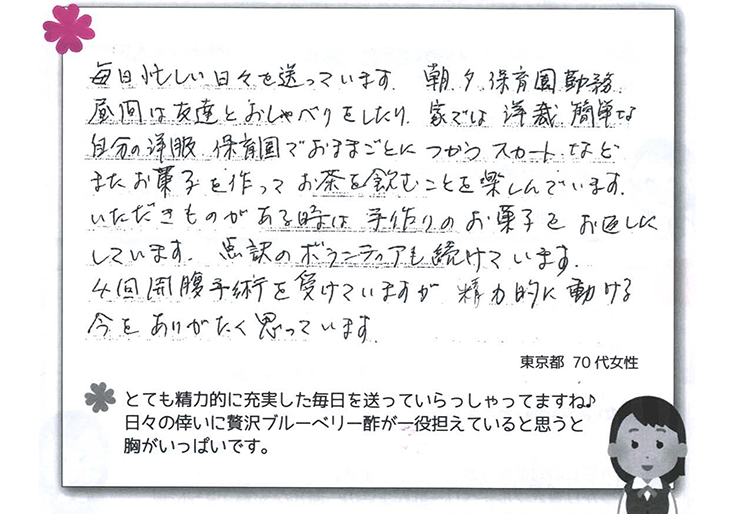 毎日忙しい日々を送っています。朝夕保育園勤務
昼間は友達とおしゃべりをしたり、家では洋裁 簡単な
自分の洋服、保育園でおままごとにつかうスカートなど
またお菓子を作ってお茶を飲むことを楽しんでいます。
いただきものがある時は手作りのお菓子をお返しに
しています。点訳のボランティアも続けています。
4回開腹手術を受けていますが 精力的に動ける
今をありがたく思っています。
東京都 70代女性
とても精力的に充実した毎日を送っていらっしゃってますね♪
日々の倖いに贅沢ブルーベリー酢が一役担えていると思うと
胸がいっぱいです。